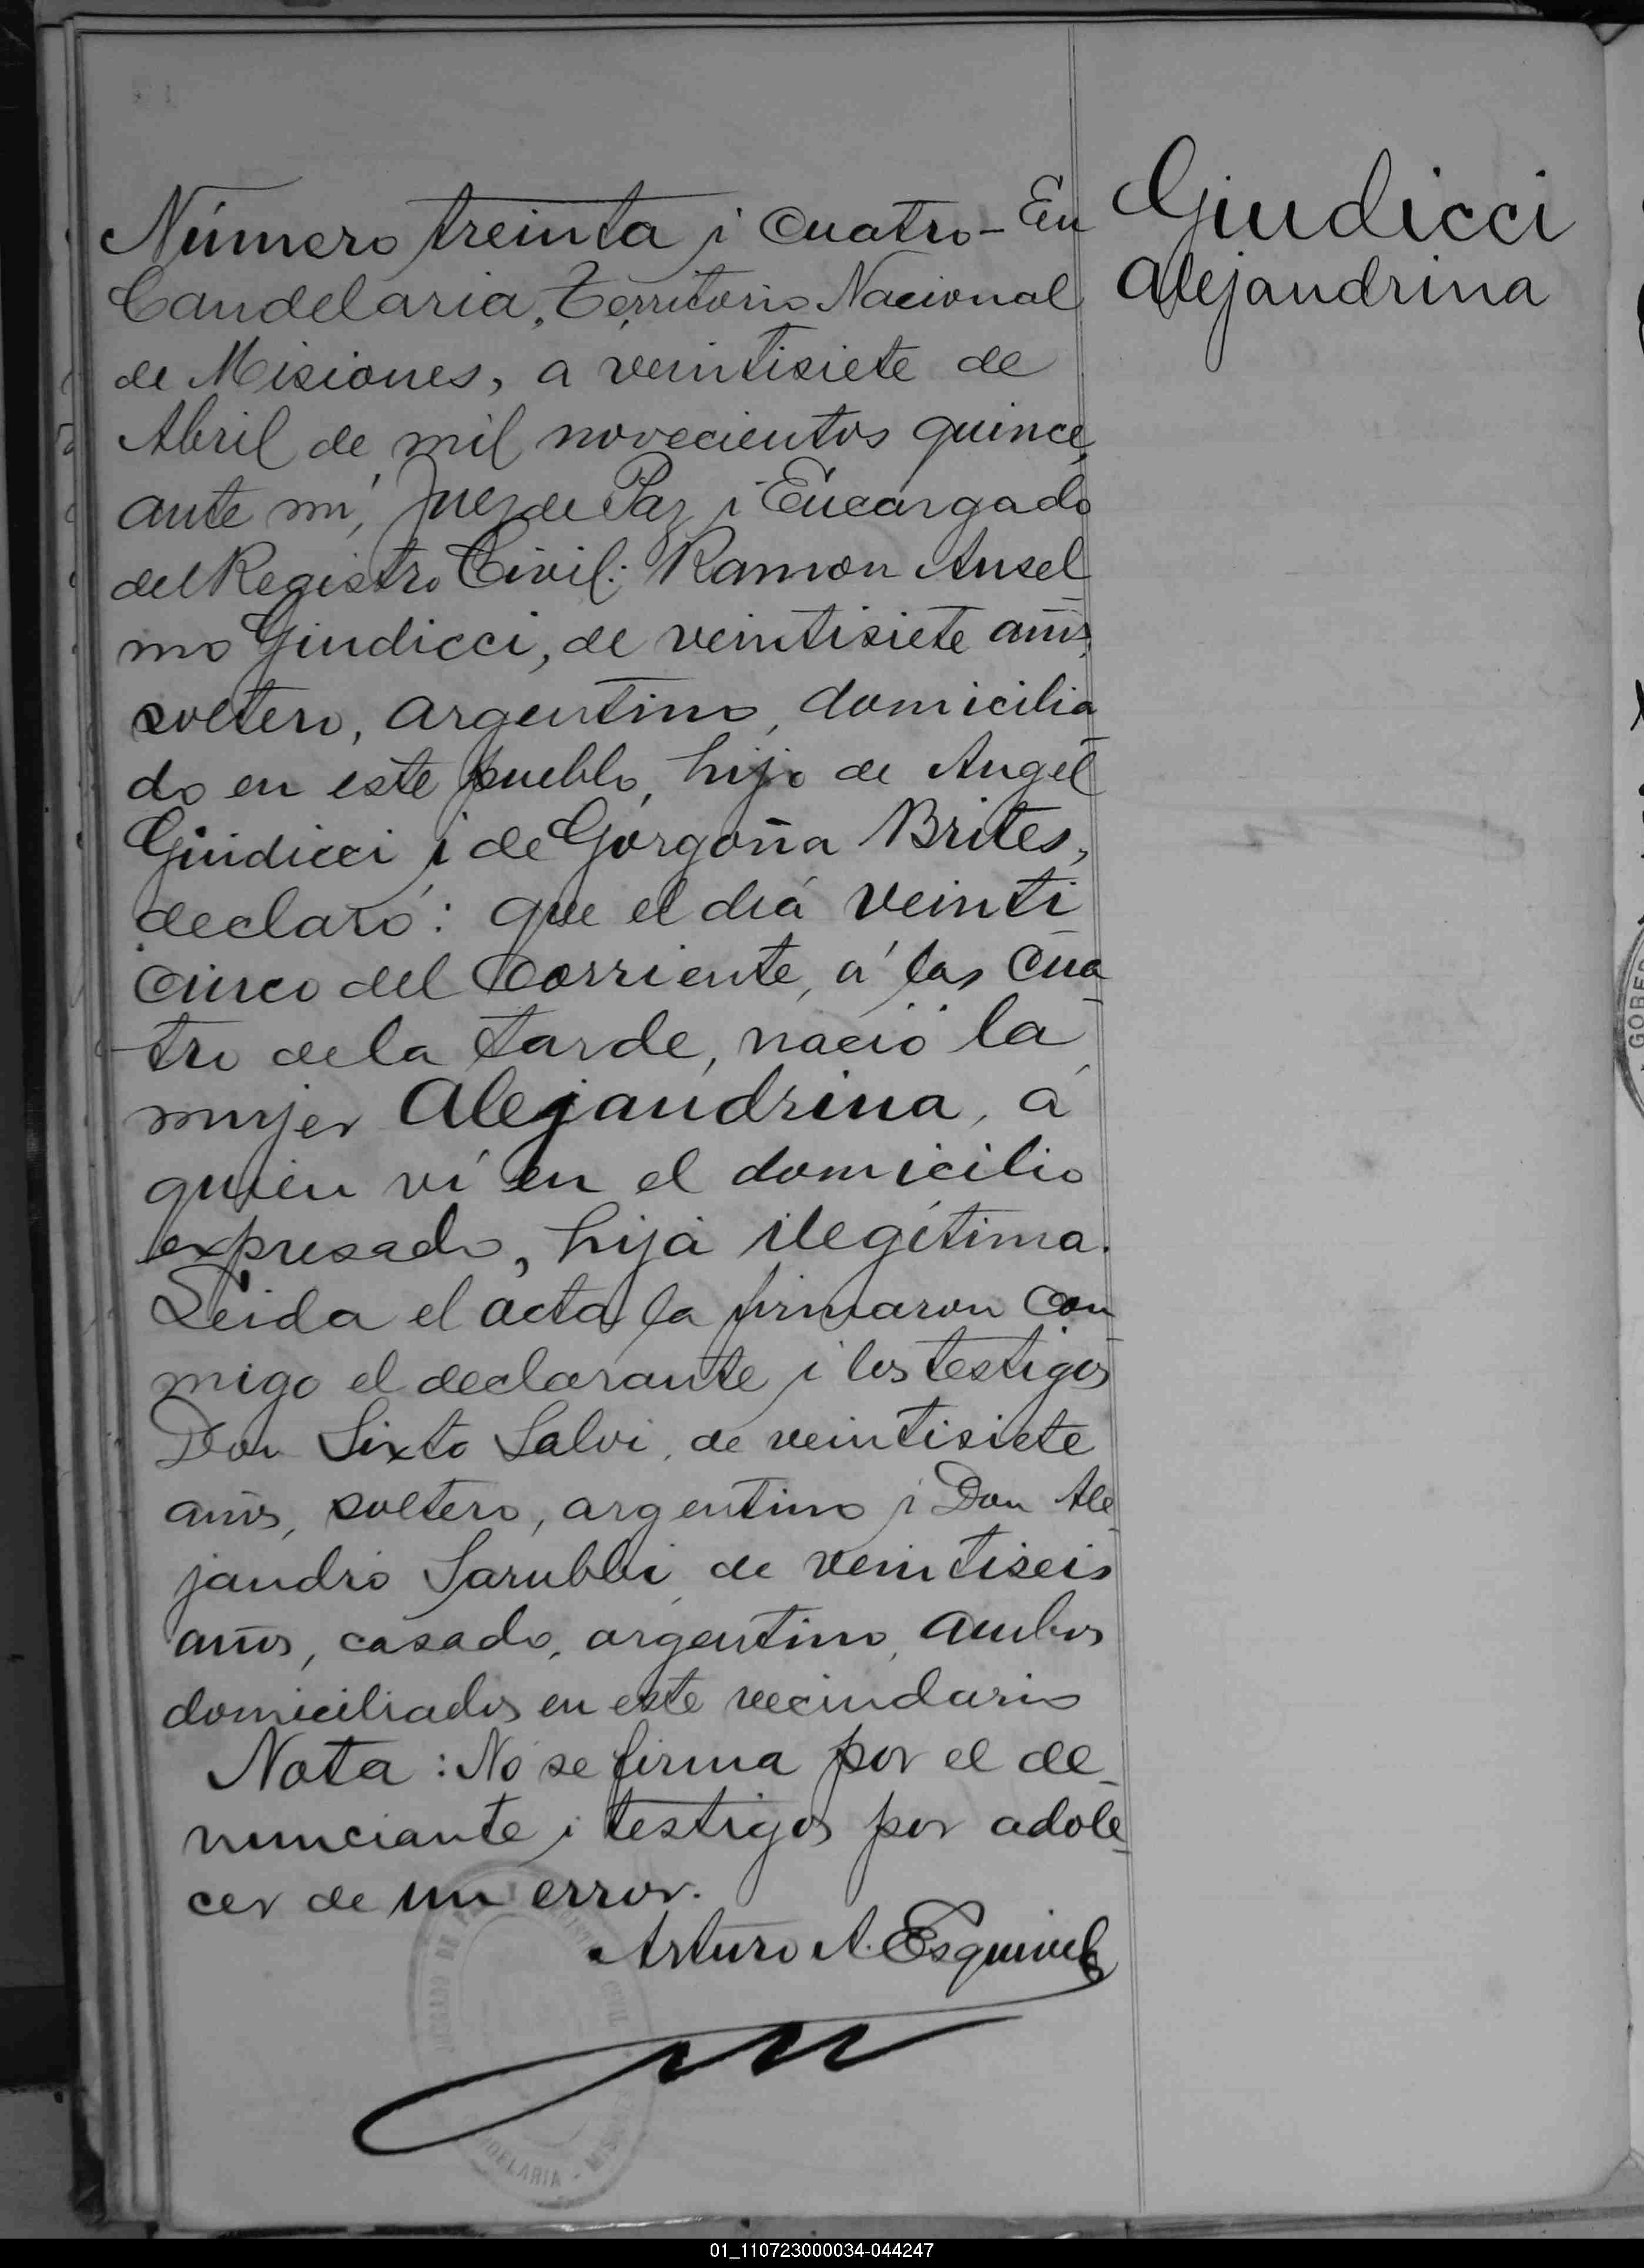 Número treinta i cuatro - En
Candelaria, Territorio Nacional
de Misiones, a veintisiete de
Abril de mil novecientos quince,
ante mí, Juez de Paz i Encargado
del Registro Civil: Ramon Ansel
mo Giudicci, de veintisiete años,
soltero, argentino, domicilia
do en este pueblo, hijo de Angel
Giudicci i de Gorgoña Brites,
declaró: que el día veinti
cinco del corriente, á las cua
tro de la tarde, nació la
mujer Alejandrina, á
quien ví en el domicilio
expresado, hija ilegítima.
Leida el acta la firmaron con
migo el declarante i los testigos
Don Sixto Salvi, de veintisiete
años, soltero, argentino i Don Ale
jandro Sarubbi, de veintiseis
años, casado, argentino, ambos
domiciliados en este vecindario
Nota: No se firma por el de
nunciante i testigos por adole
cer de un error.
Arturo A. Esquivel
Giudicci
Alejandrina
JUZGADO DE
CIVIL
DELARIA - MIS
GOBER
01_110723000034-044247